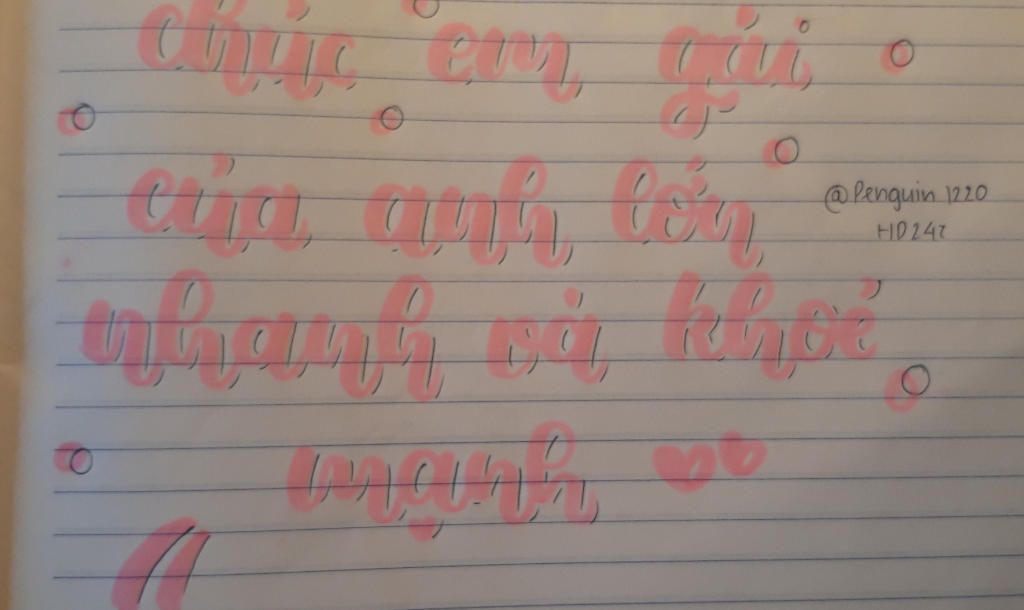 chúc em gái
của anh lớn
@Penguin 1220
HD247
nhanh và khoẻ
mạnh